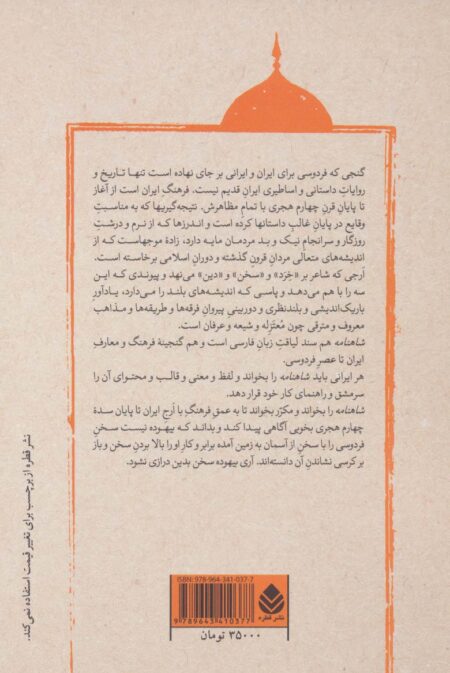 گنجی که فردوسی برای ایران و ایرانی بر جای نهاده است تنها تاریخ و
روایاتِ داستانی و اساطیری ایرانِ قدیم نیست. فرهنگِ ایران است از آغاز
تا پایانِ قرنِ چهارم هجری با تمامِ مظاهرش. نتیجه‌گیریها که به مناسبتِ
وقایع در پایانِ غالبِ داستانها کرده است و اندرزها که از نرم و درشتِ
روزگار و سرانجامِ نیک و بد مردمان مایه دارد، زادهٔ موجهاست که از
اندیشه‌های متعالی مردانِ قرونِ گذشته و دورانِ اسلامی برخاسته است.
اَرجی که شاعر بر «خِرَد» و «سخن» و «دین» می‌نهد و پیوندی که این
سه را با هم می‌دهد و پاسی که اندیشه‌های بلند را می‌دارد، یادآورِ
باریک‌اندیشی و بلندنظری و دوربینیِ پیروانِ فرقه‌ها و طریقه‌ها و مذاهب
معروف و مترقی چون مُعتَزِله و شیعه و عرفان است.
شاهنامه هم سند لیاقتِ زبانِ فارسی است و هم گنجینهٔ فرهنگ و معارفِ
ایران تا عصرِ فردوسی.
هر ایرانی باید شاهنامه را بخواند و لَفظ و معنی و قالب و محتوای آن را
سرمشق و راهنمای کار خود قرار دهد.
شاهنامه را بخواند و مکرّر بخواند تا به عمقِ فرهنگِ با اَرجِ ایران تا پایان سدهٔ
چهارم هجری بخوبی آگاهی پیدا کند و بداند که بیهوده نیست سخنِ
فردوسی را با سخنِ از آسمان به زمین آمده برابر و کارِ او را بالا بردنِ سخن و باز
بر کرسی نشاندنِ آن دانسته‌اند. آری بیهوده سخن بدین درازی نشود.
نشر قطره از برچسب برای تغییر قیمت استفاده نمی‌کند.
ISBN: 978-964-341-037-7
9 789643 410377
نشر قطره
۳۵۰۰۰ تومان